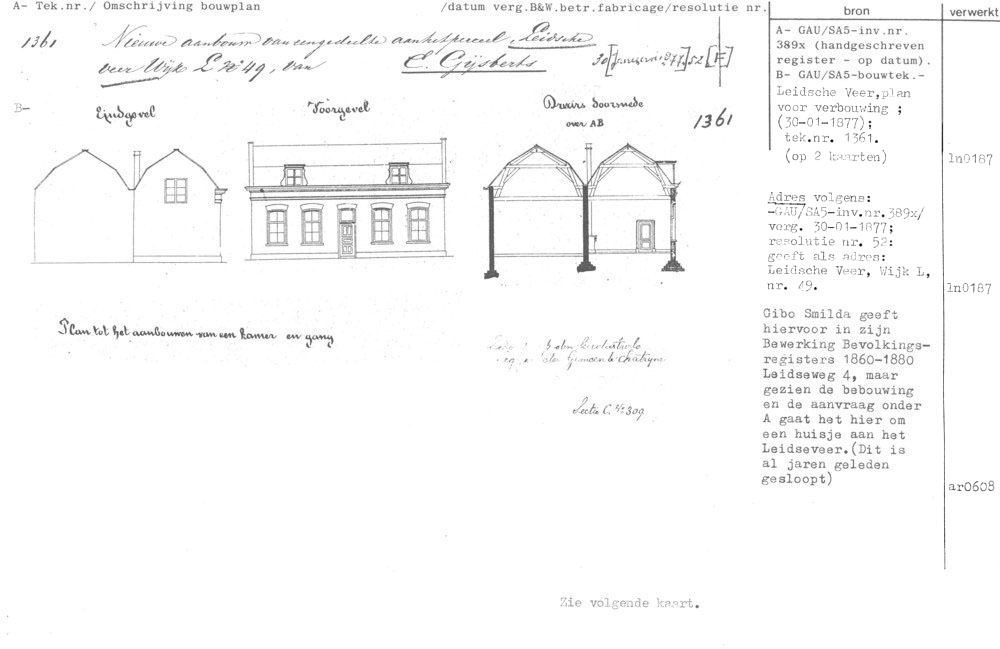 A- Tek.nr./ Omschrijving bouwplan /datum verg.B&W.betr.fabricage/resolutie nr.
1361 Nieuwe aanbouw van een gedeelte aan het perceel, Leidsche
veer Wijk L No 49, van C. Gijsberts 30 [Januari 1877] 52 [F]
B-
Eindgevel
Voorgevel
Dwars doorsnede
over AB
1361
Plan tot het aanbouwen van een kamer en gang
der Gemeente Catrijne
Sectie C. No 309
Zie volgende kaart.
bron
A- GAU/SA5-inv.nr.
389x (handgeschreven
register - op datum).
B- GAU/SA5-bouwtek.-
Leidsche Veer,plan
voor verbouwing ;
(30-01-1877);
tek.nr. 1361.
(op 2 kaarten)
Adres volgens:
-GAU/SA5-inv.nr.389x/
verg. 30-01-1877;
resolutie nr. 52:
geeft als adres:
Leidsche Veer, Wijk L,
nr. 49.
Gibo Smilda geeft
hiervoor in zijn
Bewerking Bevolkings-
registers 1860-1880
Leidseweg 4, maar
gezien de bebouwing
en de aanvraag onder
A gaat het hier om
een huisje aan het
Leidseveer.(Dit is
al jaren geleden
gesloopt)
verwerkt
ln0187
ln0187
ar0608